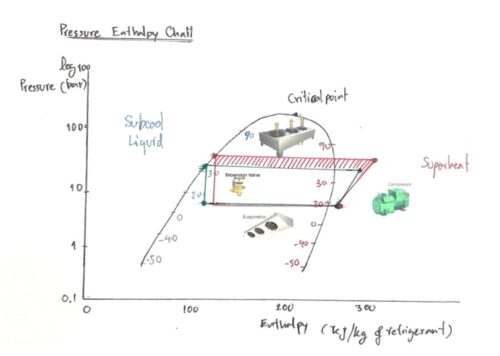 Pressure Enthalpy Chart
log100
Pressure (bar)
Critical point
100
Subcool
Liquid
90
90
Superheat
30
Expansion Valve
30
Compressor
10
20
20
0
0
Evaporator
-40
-40
1
-50
-50
0.1
0
100
200
300
Enthalpy (kj/kg of refrigerant)